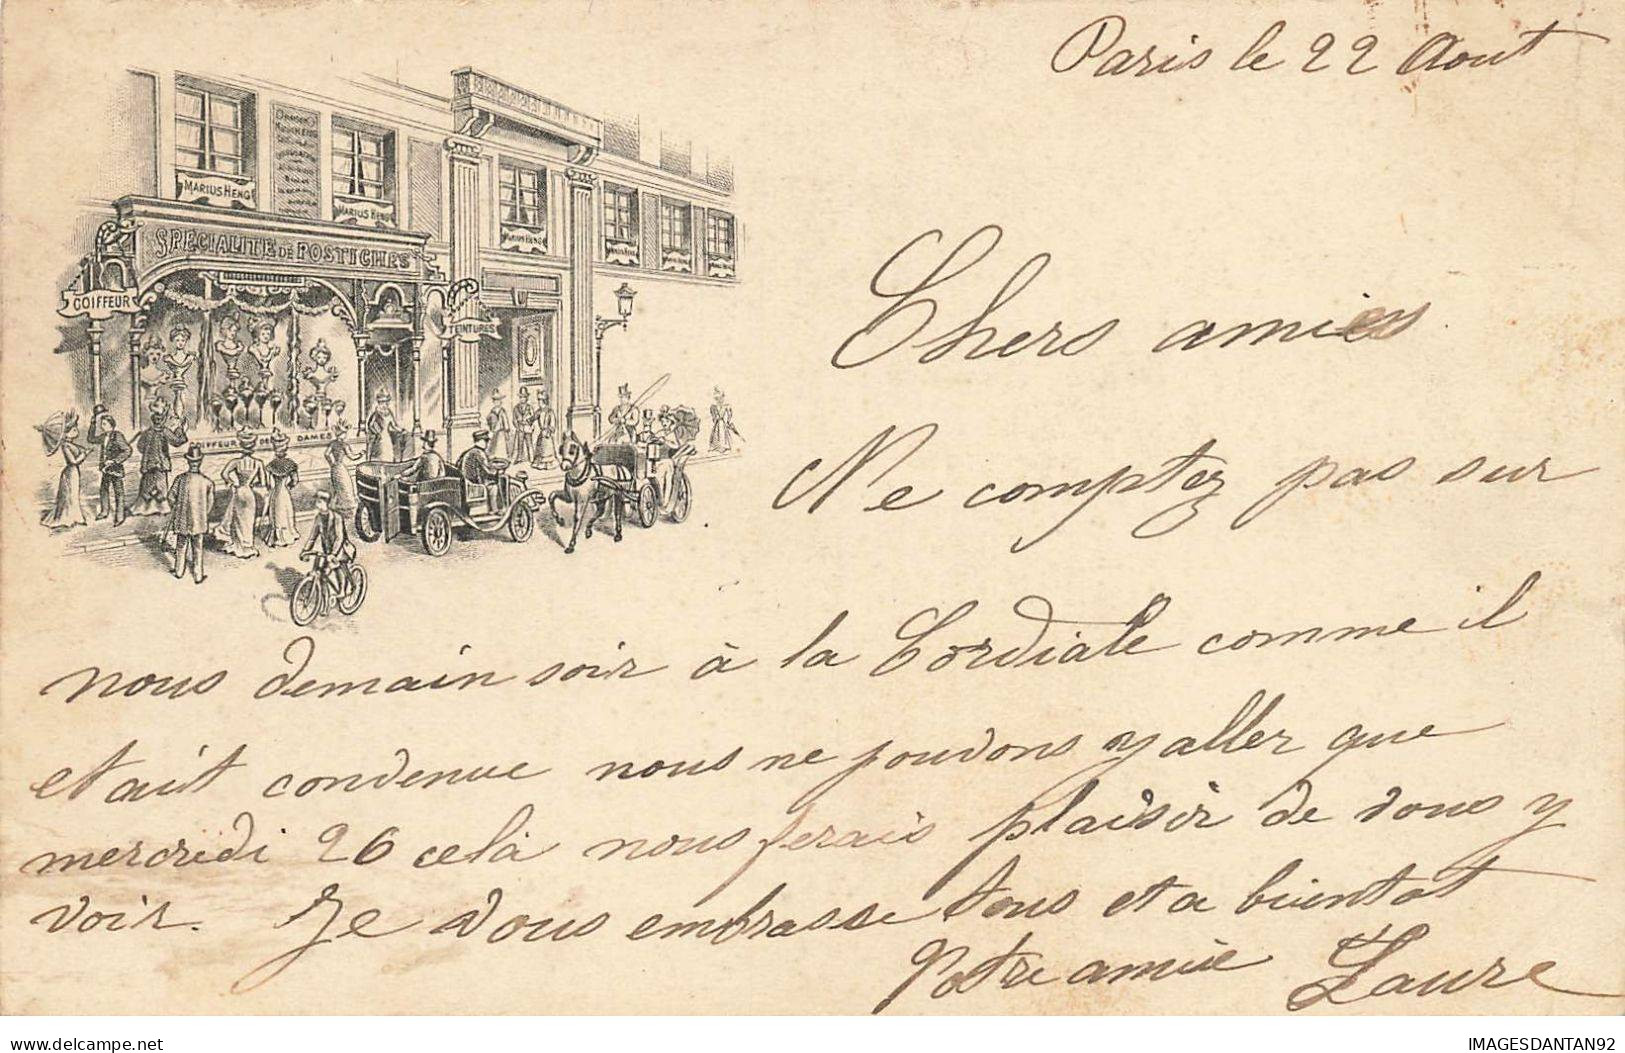 Paris le 22 Aout
MARIUS HENG
MARIUS HENG
MARIUS HENG
SPÉCIALITÉ DE POSTICHES
COIFFEUR
TEINTURES
COIFFEUR DES DAMES
Chers amies
Ne comptez pas sur
nous demain soir à la Cordiale comme il
etait convenue nous ne pouvons y aller que
mercredi 26 celà nous ferais plaisir de vous y
voir. Je vous embrasse tous et a bientot
Votre amie Laure
delcampe.net
IMAGESDANTAN92